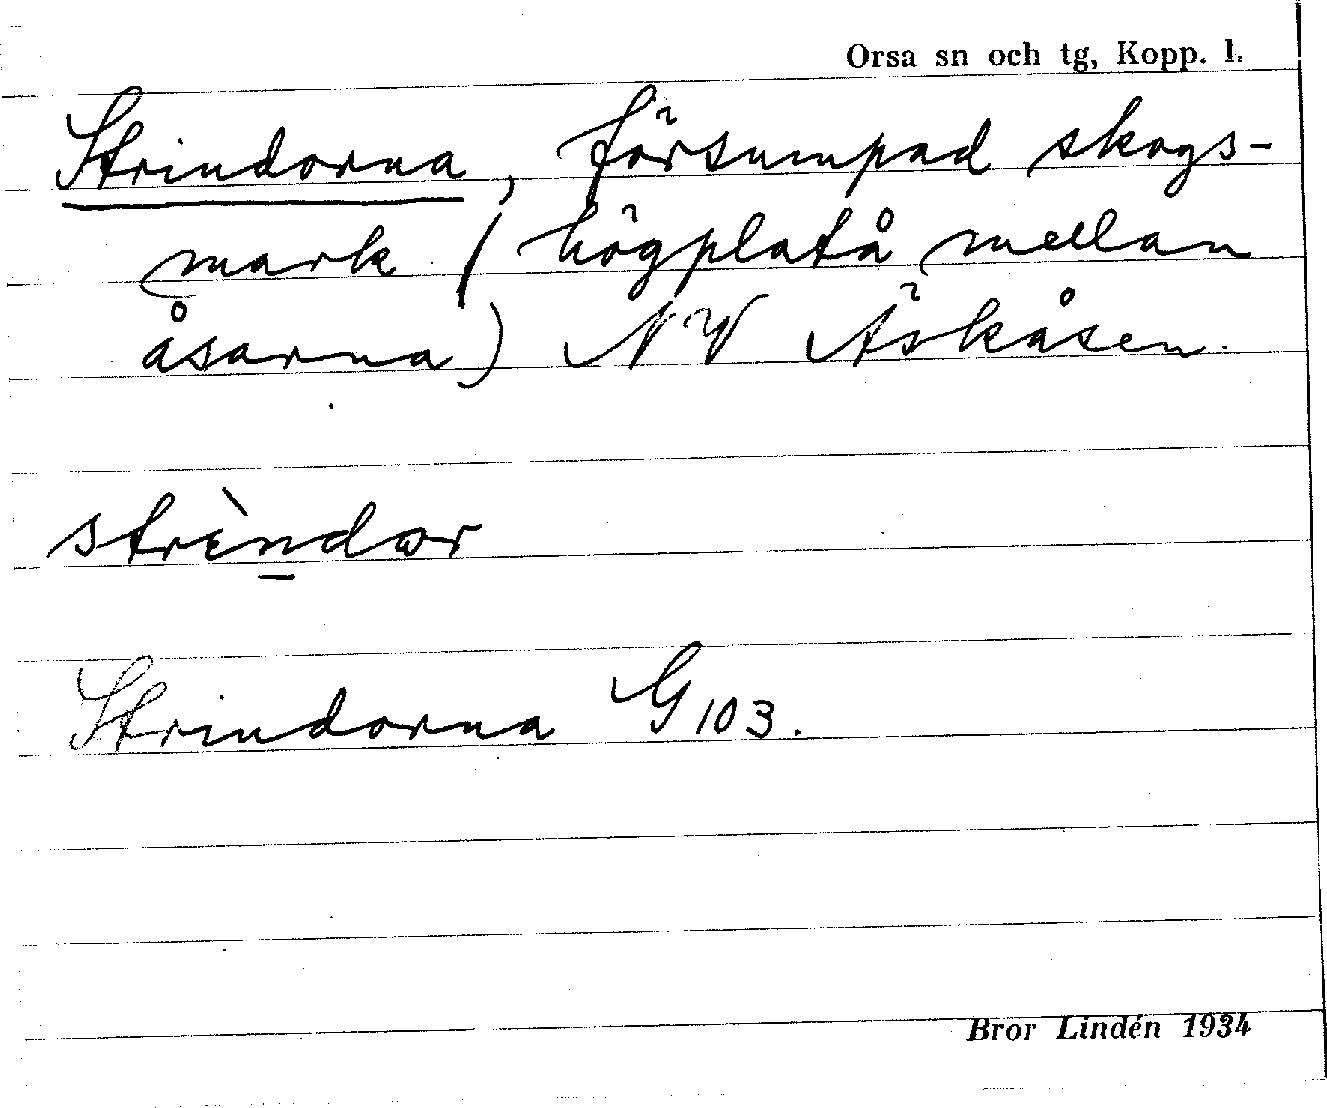 Orsa sn och tg, Kopp. l.
Strindorna, försumpad skogs-
mark (högplatå mellan
åsarna) NV Äskåsen.
strὶn̲dωr
Strindorna G 103.
Bror Lindén 1934